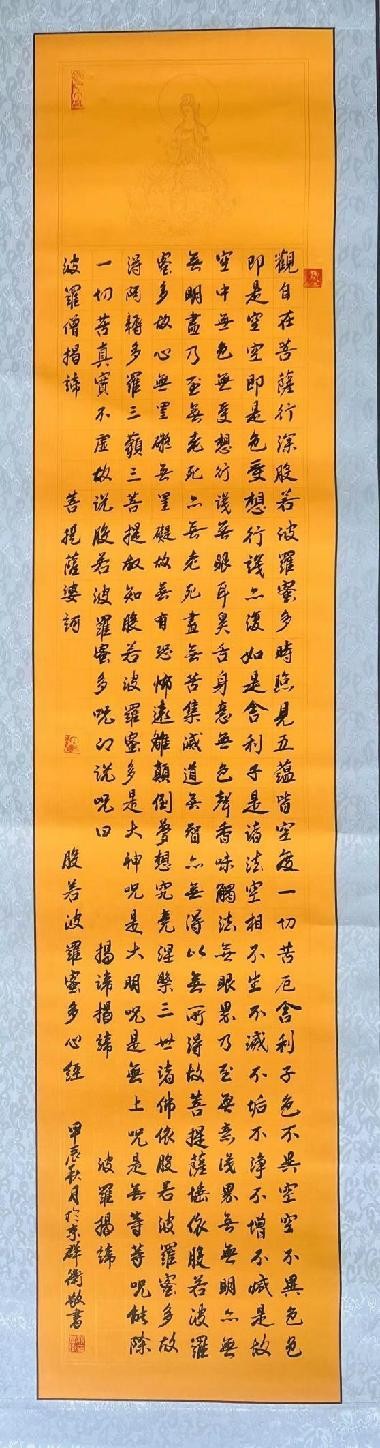 觀自在菩薩行深般若波羅蜜多時照見五蘊皆空度一切苦厄舍利子色不異空空不異色色
即是空空即是色受想行識亦復如是舍利子是諸法空相不生不滅不垢不淨不增不減是故
空中無色無受想行識無眼耳鼻舌身意無色聲香味觸法無眼界乃至無意識界無無明亦無
無明盡乃至無老死亦無老死盡無苦集滅道無智亦無得以無所得故菩提薩埵依般若波羅
蜜多故心無罣礙無罣礙故無有恐怖遠離顛倒夢想究竟涅槃三世諸佛依般若波羅蜜多故
得阿耨多羅三藐三菩提故知般若波羅蜜多是大神呪是大明呪是無上呪是無等等呪能除
一切苦真實不虛故說般若波羅蜜多呪即說呪曰 揭諦揭諦 波羅揭諦
波羅僧揭諦 菩提薩婆訶 般若波羅蜜多心經 甲辰秋月於京群衛敬書